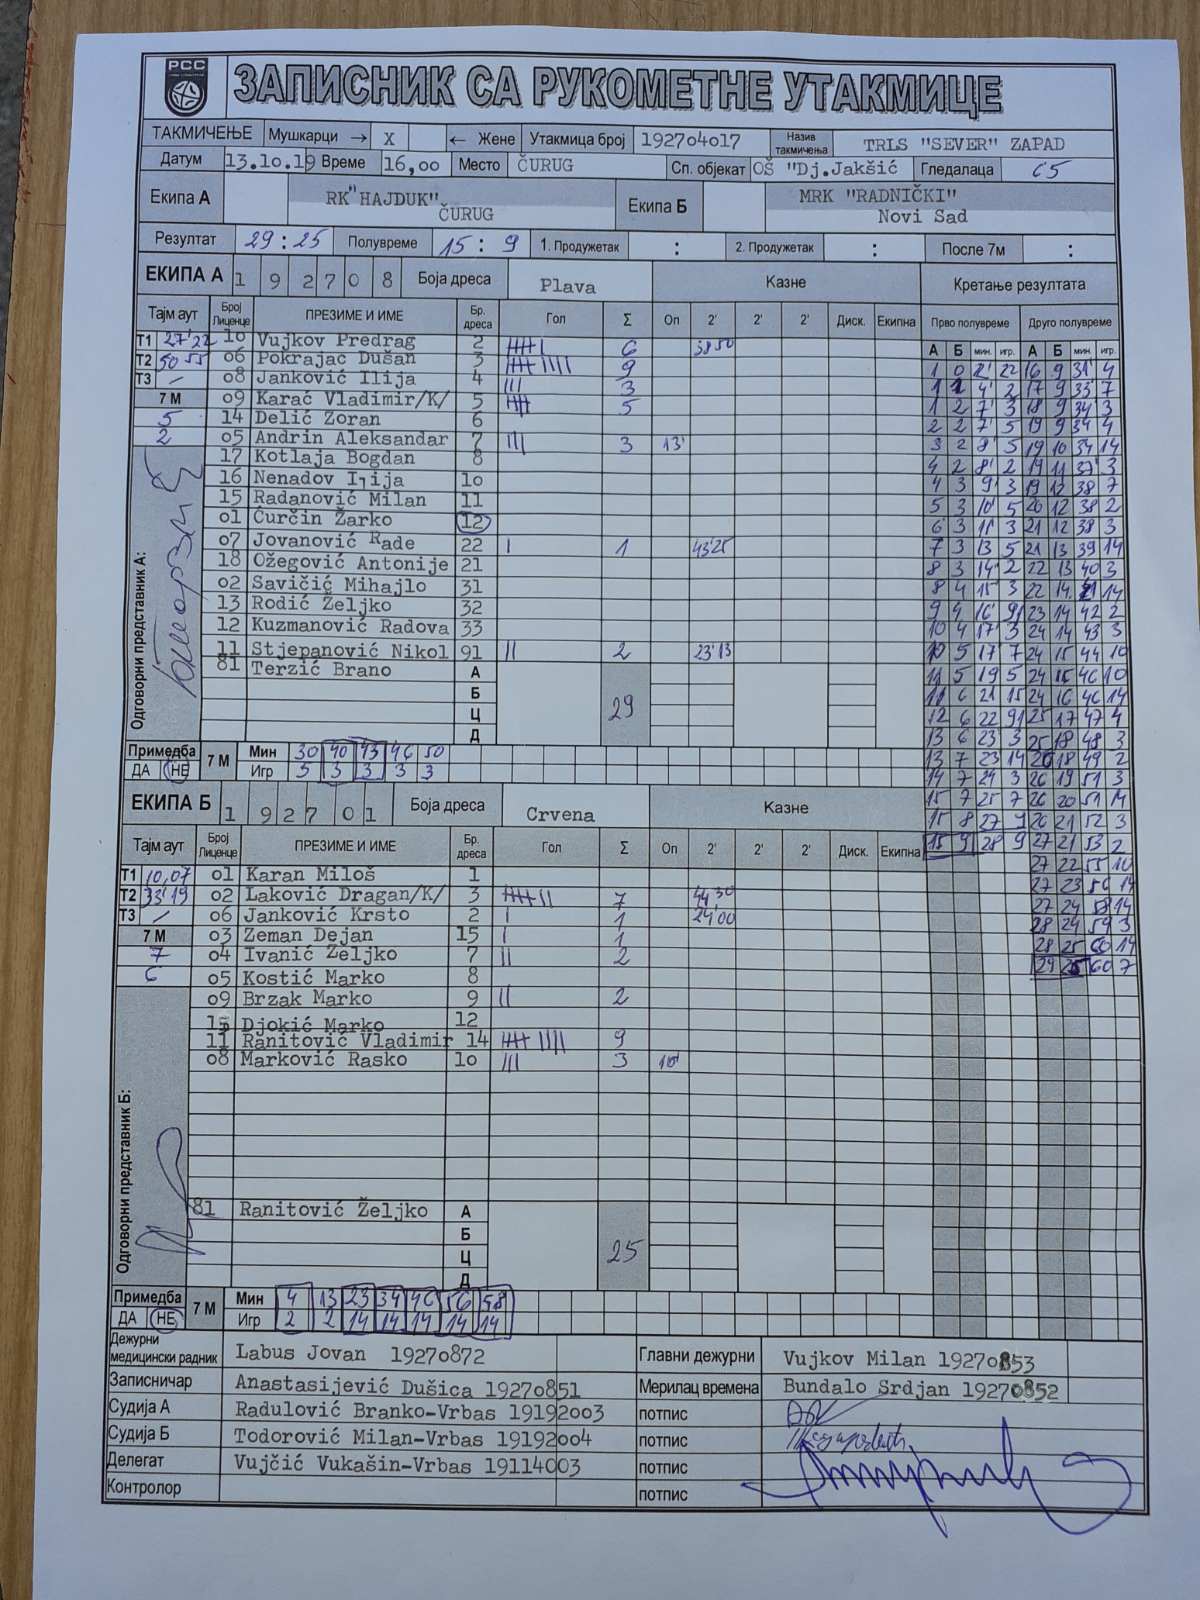 РСС
ЗАПИСНИК СА РУКОМЕТНЕ УТАКМИЦЕ
ТАКМИЧЕЊЕ Мушкарци → X ← Жене Утакмица број 192704017 Назив такмичења TRLS "SEVER" ZAPAD
Датум 13.10.19 Време 16,00 Место ČURUG Сп. објекат OŠ "Dj.Jakšić Гледалаца 65
Екипа А RK"HAJDUK" ČURUG Екипа Б MRK "RADNIČKI" Novi Sad
Резултат 29:25 Полувреме 15:9 1. Продужетак : 2. Продужетак : После 7м :
ЕКИПА А 1 9 2 7 0 8 Боја дреса Plava Казне Кретање резултата
Тајм аут Број Лиценце ПРЕЗИМЕ И ИМЕ Бр. дреса Гол Σ Оп 2' 2' 2' Диск. Екипна Прво полувреме Друго полувреме
А Б мин. игр. А Б мин. игр.
T1 27'22 10 Vujkov Predrag 2 6 38 50
T2 50 55 06 Pokrajac Dušan 3 9
T3 – 08 Janković Ilija 4 3
7 М 09 Karać Vladimir/K/ 5 5
5 14 Delić Zoran 6
2 05 Andrin Aleksandar 7 3 13'
17 Kotlaja Bogdan 8
16 Nenadov Ilija 10
15 Radanović Milan 11
01 Ćurčin Žarko 12
07 Jovanović Rade 22 1 43'25
18 Ožegović Antonije 21
02 Savičić Mihajlo 31
13 Rodić Željko 32
12 Kuzmanović Radova 33
11 Stjepanović Nikol 91 2 23'13
81 Terzić Brano А
Б
Ц 29
Д
Одговорни представник А:
1 0 2' 22 16 9 31' 4
1 1 4' 2 17 9 33' 7
1 2 7' 3 18 9 34 3
2 2 7' 5 19 9 34 4
3 2 8' 5 19 10 34 14
4 2 8' 2 19 11 37' 3
4 3 9' 3 19 12 38 7
5 3 10' 5 20 12 38 2
6 3 11' 3 21 12 38 3
7 3 13 5 21 13 39 14
8 3 14' 2 22 13 40 3
8 4 15 3 22 14 41 14
9 4 16' 91 23 14 42 2
10 4 17' 3 24 14 43 3
10 5 17' 7 24 15 44 10
11 5 19 5 24 15 46 10
11 6 21 15 24 16 46 14
12 6 22 91 25 17 47 4
13 6 23 3 25 18 48 3
13 7 23 14 26 18 49 2
14 7 24 3 26 19 51 3
15 7 25 7 26 20 51 14
15 8 27 9 26 21 52 3
15 9 28 9 27 21 53 2
27 22 55 10
27 23 56 14
27 24 58 14
28 24 59 3
28 25 60 14
29 25 60 7
Примедба 7 М Мин 30 40 43 46 50
ДА НЕ Игр 5 3 3 3 3
ЕКИПА Б 1 9 2 7 0 1 Боја дреса Crvena Казне
Тајм аут Број Лиценце ПРЕЗИМЕ И ИМЕ Бр. дреса Гол Σ Оп 2' 2' 2' Диск. Екипна
T1 10,07 01 Karan Miloš 1
T2 33'19 02 Laković Dragan/K/ 3 7 44 30
T3 – 06 Janković Krsto 2 1 24'00
7 М 03 Zeman Dejan 15 1
7 04 Ivanić Željko 7 2
6 05 Kostić Marko 8
09 Brzak Marko 9 2
15 Djokić Marko 12
11 Ranitović Vladimir 14 9
08 Marković Rasko 10 3 10'
81 Ranitović Željko А
Б
Ц 25
Д
Одговорни представник Б:
Примедба 7 М Мин 4 13 23 34 46 56 58
ДА НЕ Игр 2 2 14 14 14 14 14
Дежурни медицински радник Labus Jovan 19270872 Главни дежурни Vujkov Milan 19270853
Записничар Anastasijević Dušica 19270851 Мерилац времена Bundalo Srdjan 19270852
Судија А Radulović Branko-Vrbas 19192003 потпис
Судија Б Todorović Milan-Vrbas 19192004 потпис
Делегат Vujčić Vukašin-Vrbas 19114003 потпис
Контролор потпис